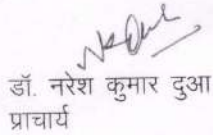 डॉ. नरेश कुमार दुआ
प्राचार्य